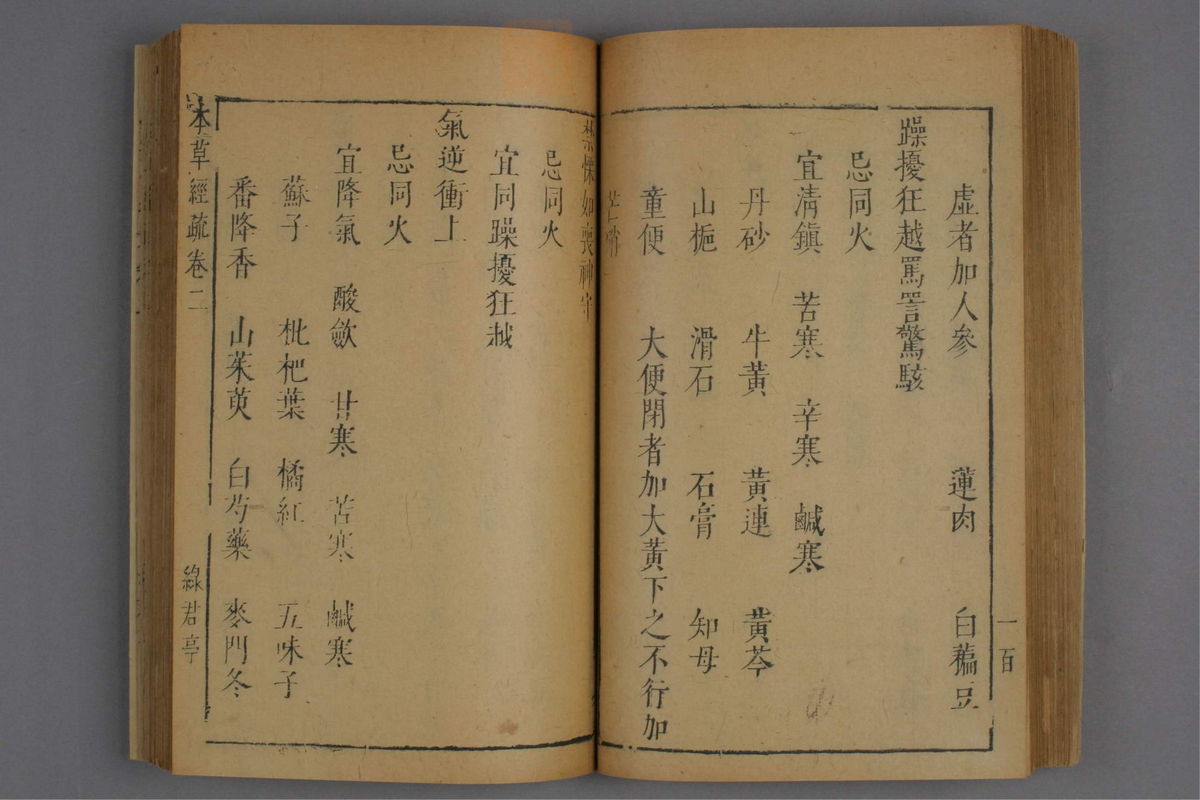 虛者加人參 蓮肉 白藊豆
躁擾狂越罵詈驚駭
忌同火
宜清鎮 苦寒 辛寒 鹹寒
丹砂 牛黃 黃連 黃芩
山梔 滑石 石膏 知母
童便 大便閉者加大黃下之不行加
芒硝
一百
禁慄如喪神守
忌同火
宜同躁擾狂越
氣逆衝上
忌同火
宜降氣 酸斂 甘寒 苦寒 鹹寒
蘇子 枇杷葉 橘紅 五味子
番降香 山茱萸 白芍藥 麥門冬
本草經疏卷二 綠君亭